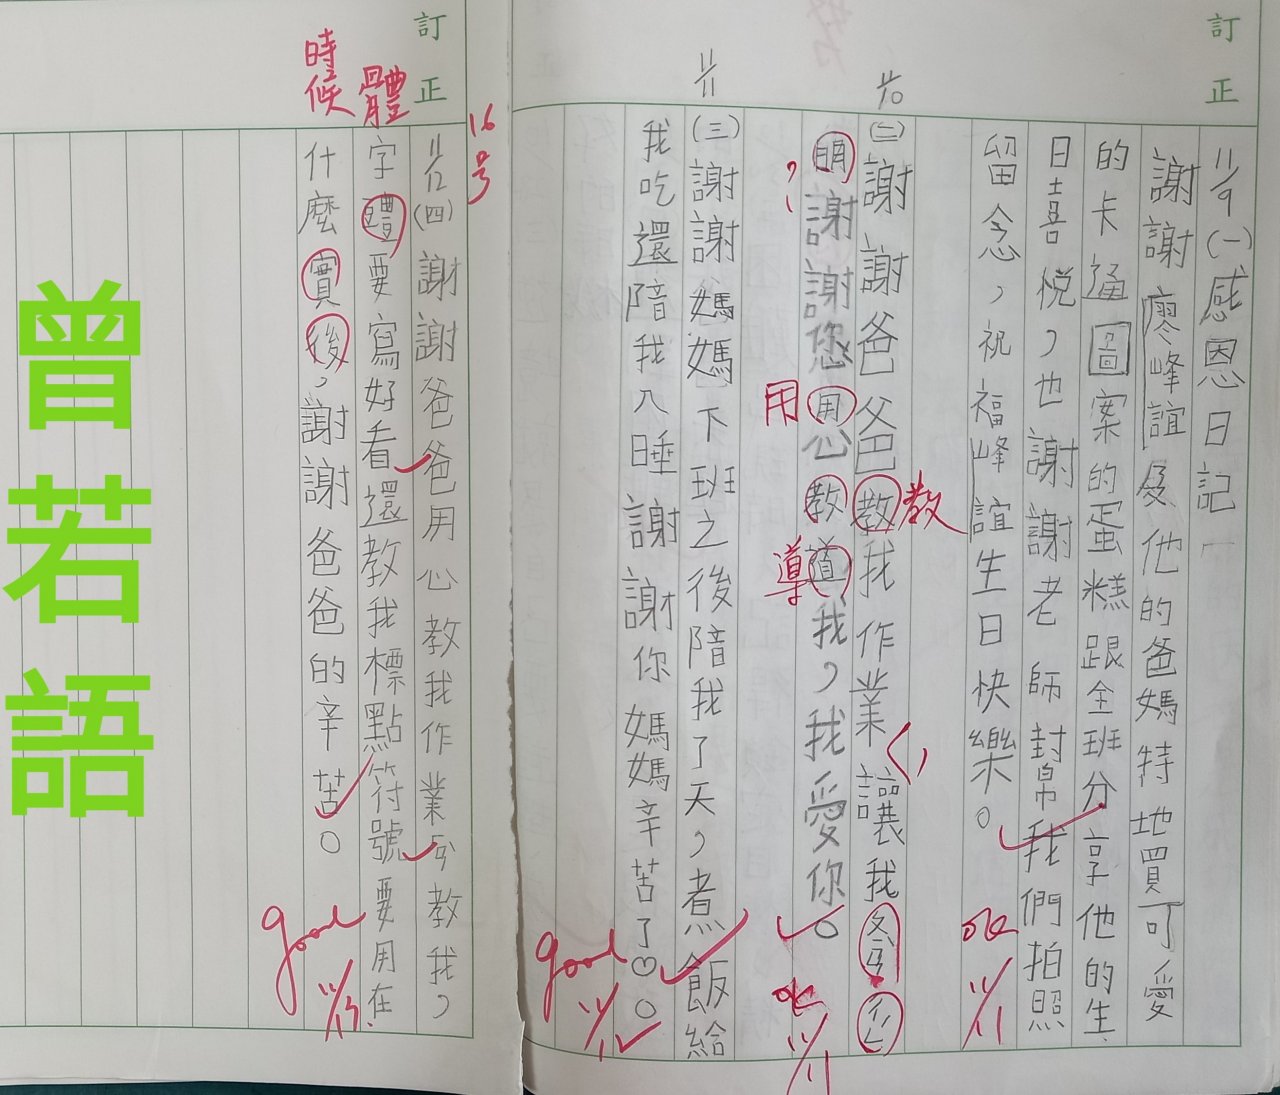 訂正
11/9(一)感恩日記
謝謝廖峰誼及他的爸媽特地買可愛
的卡通圖案的蛋糕跟全班分享他的生
日喜悅，也謝謝老師封帛我們拍照
留念，祝福峰誼生日快樂。
ok 11/11
11/10
(二)謝謝爸爸教我作業讓我
教
明謝謝您用心教道我，我愛你。
用
導
ok 11/11
11/11
(三)謝謝媽媽下班之後陪我了天，煮飯給
我吃還陪我入睡謝謝你媽媽辛苦了♡。
good 11/12
訂正
16号
11/12(四)謝謝爸爸用心教我作業ㄍㄢ教我，
體
字體要寫好看還教我標點符號要用在
時候
什麼實後，謝謝爸爸的辛苦。
good 11/13.
曾若語